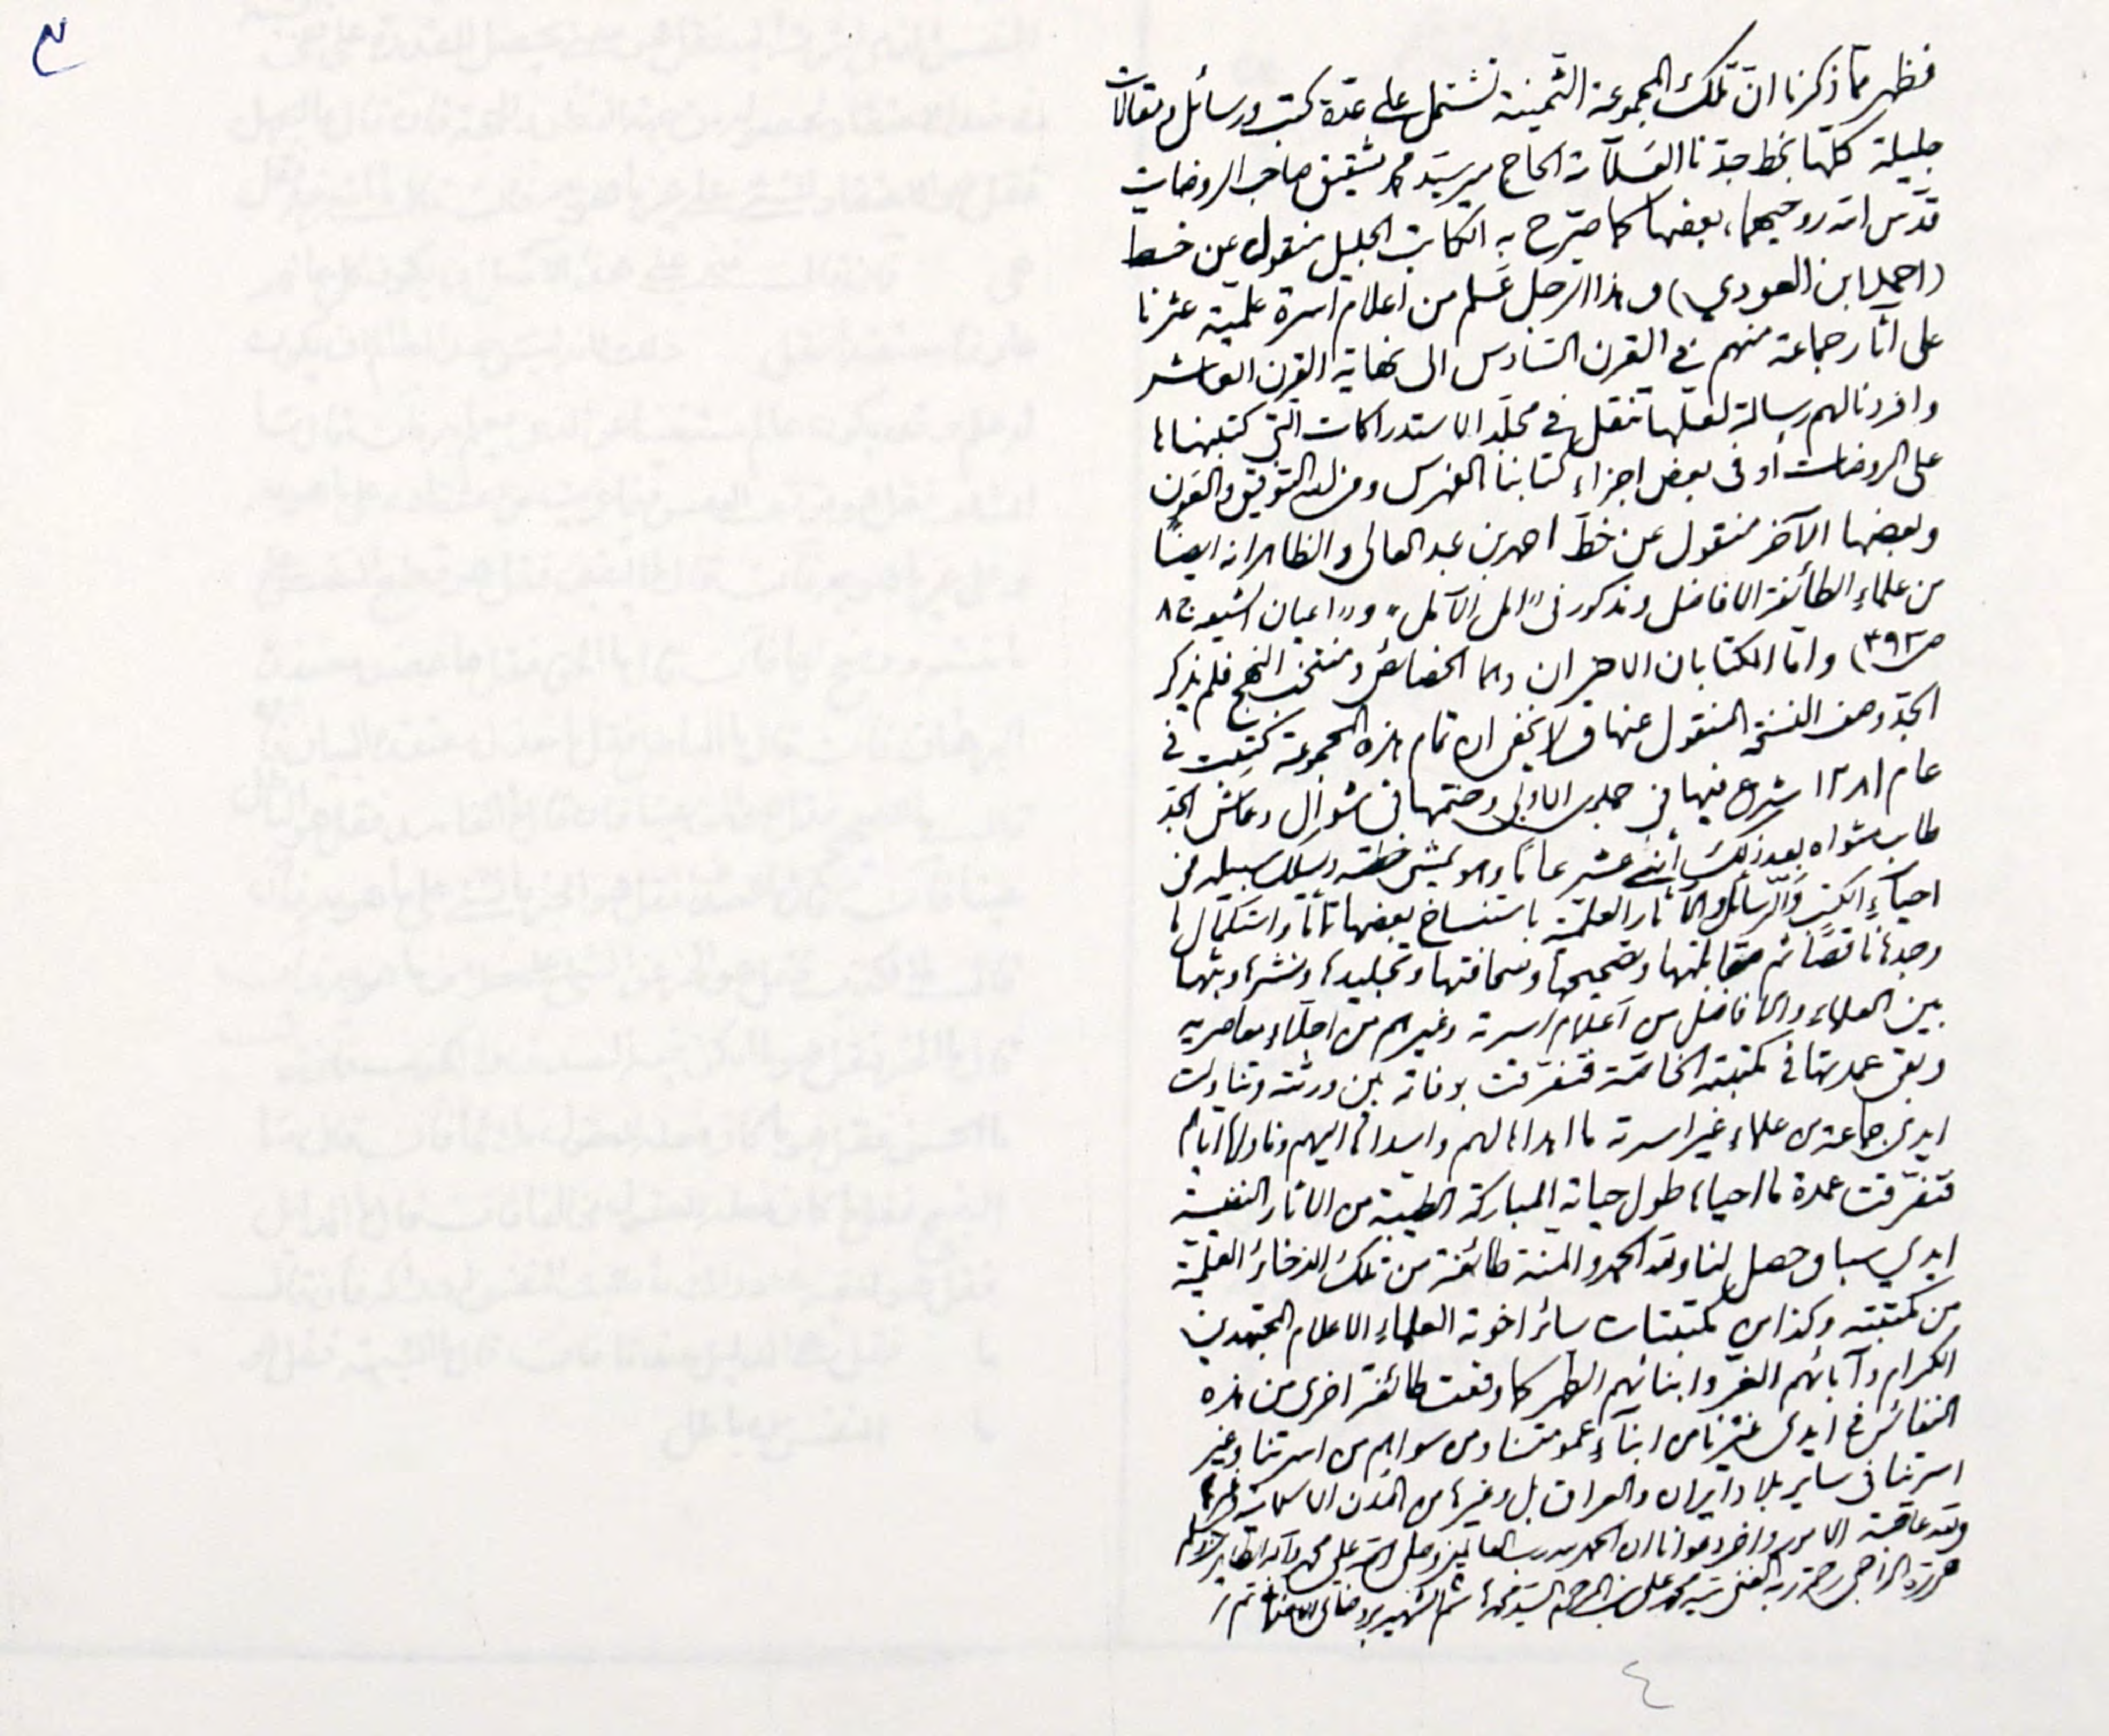 فظهر مما ذكرنا ان تلك المجموعة الثمينة تشتمل على عدة كتب ورسائل ومقالات
جليلة كلها بخط جدنا العلامة الحاج مير سيد محمد شقيق صاحب الروضات
قدس الله روحيهما، بعضها كما صرح به الكاتب الجليل منقول عن خط
(احمد ابن العودي) وهذا الرجل علم من أعلام أسرة علمية عثرنا
على آثار جماعة منهم في القرن السادس الى نهاية القرن العاشر
وافردنا لهم رسالة لعلها تنقل في مجلد الاستدراكات التي كتبناها
على الروضات أو في بعض اجزاء كتابنا الفهرس ومن الله التوفيق والعون
وبعضها الآخر منقول عن خط احمد بن عبد العالي والظاهر انه ايضاً
من علماء الطائفة الافاضل ومذكور في "امل الآمل" و"اعيان الشيعه ج٨
ص٣٩٢) واما الكتابان الاخيران وهما الخصائص ومنتخب النهج فلم يذكر
الجد وصف النسخة المنقول عنها ولا يخفى ان تمام هذه المجموعة كتبت في
عام ١٢٨١ شرع فيها في جمادى الاولى وختمها في شوال وعاش الجد
طاب مثواه بعد ذلك أثنى عشر عاماً وهو يمشي خطته ويسلك سبيله في
احياء الكتب والرسائل والآثار العلمية باستنساخ بعضها تاماً واستكمال ما
وجدها ناقصاً ثم مقابلتها وتصحيحها وصحافتها وتجليدها ونشرها وبثها
بين العلماء والافاضل من أعلام اسرته وغيرهم من اجلاء معاصريه
وبقي عمدتها في مكتبته الخاصة فتفرقت بوفاته بين ورثته وتناولت
ايدي جماعة من علماء غير اسرته ما اهداها لهم واسداها اليهم وناولها اياهم
فتفرقت عمدة ما احياه طول حياته المباركة الطيبة من الآثار النفيسة
ايدي سبا وحصل لنا ولله الحمد والمنة طائفة من تلك الذخائر العلمية
من مكتبته وكذا من مكتبات سائر اخوته العلماء الاعلام المجتهدين
الكرام وآبائهم الغر وابنائهم الطهر كما وقعت طائفة اخرى من هذه
النفائس في ايدي غيرنا من ابناء عمومتنا ومن سواهم من اسرتنا وغير
اسرتنا في ساير بلاد ايران والعراق بل وغيرها من المدن الاسلامية وغيرها
ولله عاقبة الامور وآخر دعوانا ان الحمد لله رب العالمين وصلى الله على محمد وآله الطاهرين وسلم
حرره الراجي رحمة ربه الغني سيد محمد علي بن المرحوم السيد محمد هاشم الشهير بروضاتي
٤